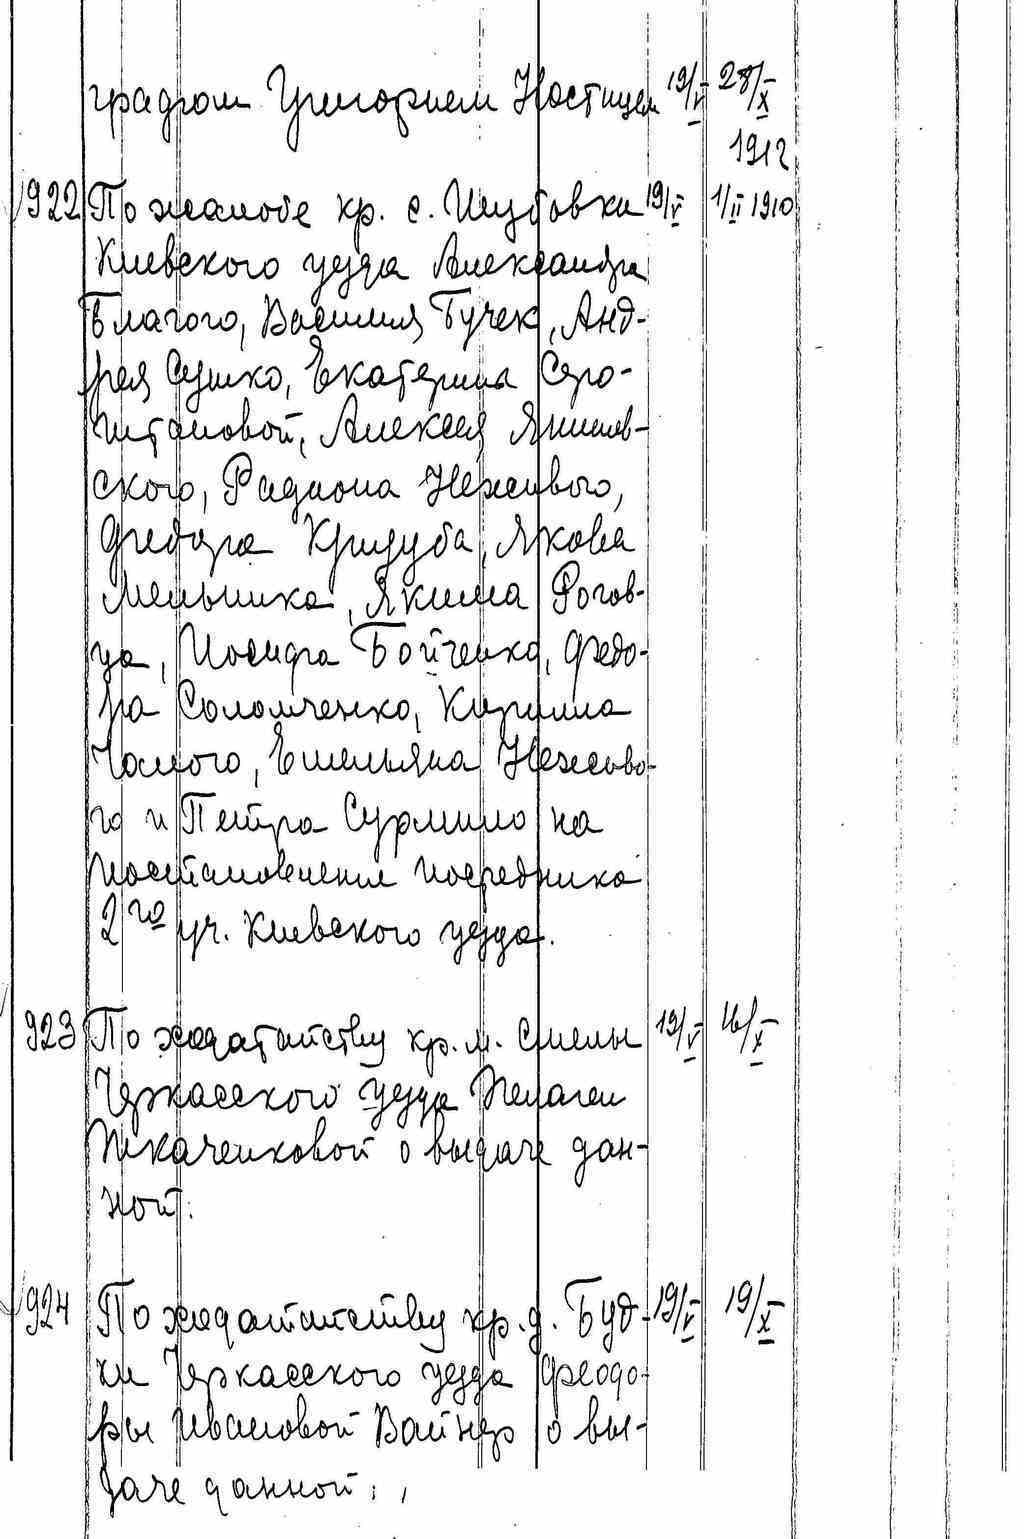 градом Григорием Ностицем 19/V 28/X
1912
922 По жалобе кр. с. Шубовки 19/V 1/II 1910
Киевского уезда Александра
Благого, Василия Бучек, Анд-
рея Сушко, Екатерины Серо-
штановой, Алексея Яншев-
ского, Радиона Неживого,
Федора Кризуба, Якова
Мельника, Якима Рогов-
ца, Иосифа Бойченко, Федо-
ра Соломченко, Кирилла
Чалого, Емельяна Неживо-
го и Петра Сурмило на
постановление посредника
2го уч. Киевского уезда.
923 По ходатайству кр. м. Смелы 19/V 16/X
Черкасского уезда Пелагеи
Ткаченковой о выдаче дан-
ной.
924 По ходатайству кр. д. Буд- 19/V 19/X
ки Черкасского уезда Феодо-
ры Ивановой Вайнер о вы-
даче данной.